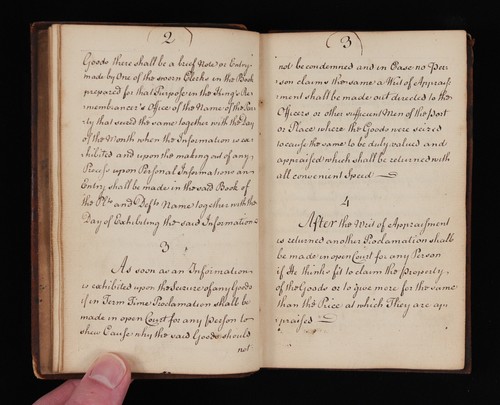 (2)
Goods there shall be a brief Note or Entry
made by One of the sworn Clerks in the Book
prepared for that Purpose in the King's Re-
membrancer's Office of the Name of the Par
ty that seized the same together with the Day
of the Month when the Information is ex
hibited and upon the making out of any
Process upon Personal Informations an
Entry shall be made in the said Book of
the Plts and Defts Name together with the
Day of Exhibiting the said Information
3
As soon as an Information
is exhibited upon the Seizure of any Goods
if in Term Time Proclamation shall be
made in open Court for any Person to
shew Cause why the said Goods should
not
(3)
not be condemned and in Case no Per
son claims the same a Writ of Appraise
ment shall be made out directed to the
Officers or other sufficient Men of the Port
or Place where the Goods were seized
to cause the same to be duly valued and
appraised which shall be returned with
all convenient Speed
4
After the Writ of Appraisment
is returned another Proclamation shall
be made in open Court for any Person
if He thinks fit to claim the Property
of the Goods or to give more for the same
than the Price at which They are ap
praised